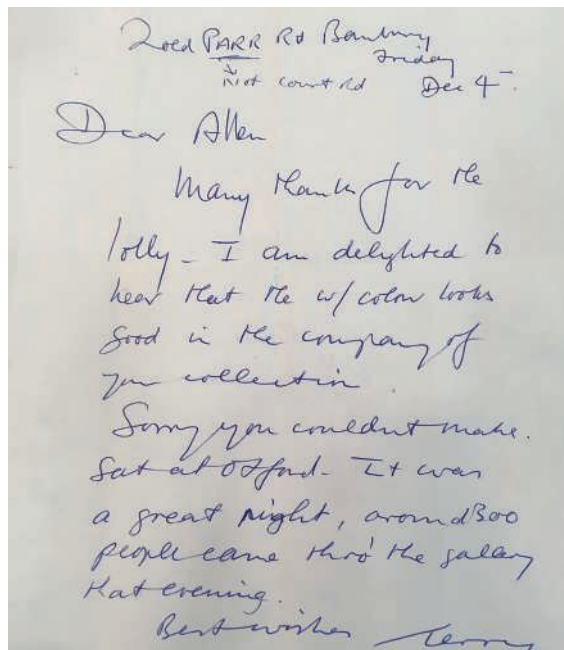 2 Old PARR Rd Banbury
Friday
Not court Rd Dec 4
Dear Allen
Many thanks for the
lolly - I am delighted to
hear that the w/colour looks
good in the company of
your collection.
Sorry you couldn't make.
Sat at Oxford - It was
a great night, around 300
people came thro' the gallery
that evening.
Best wishes